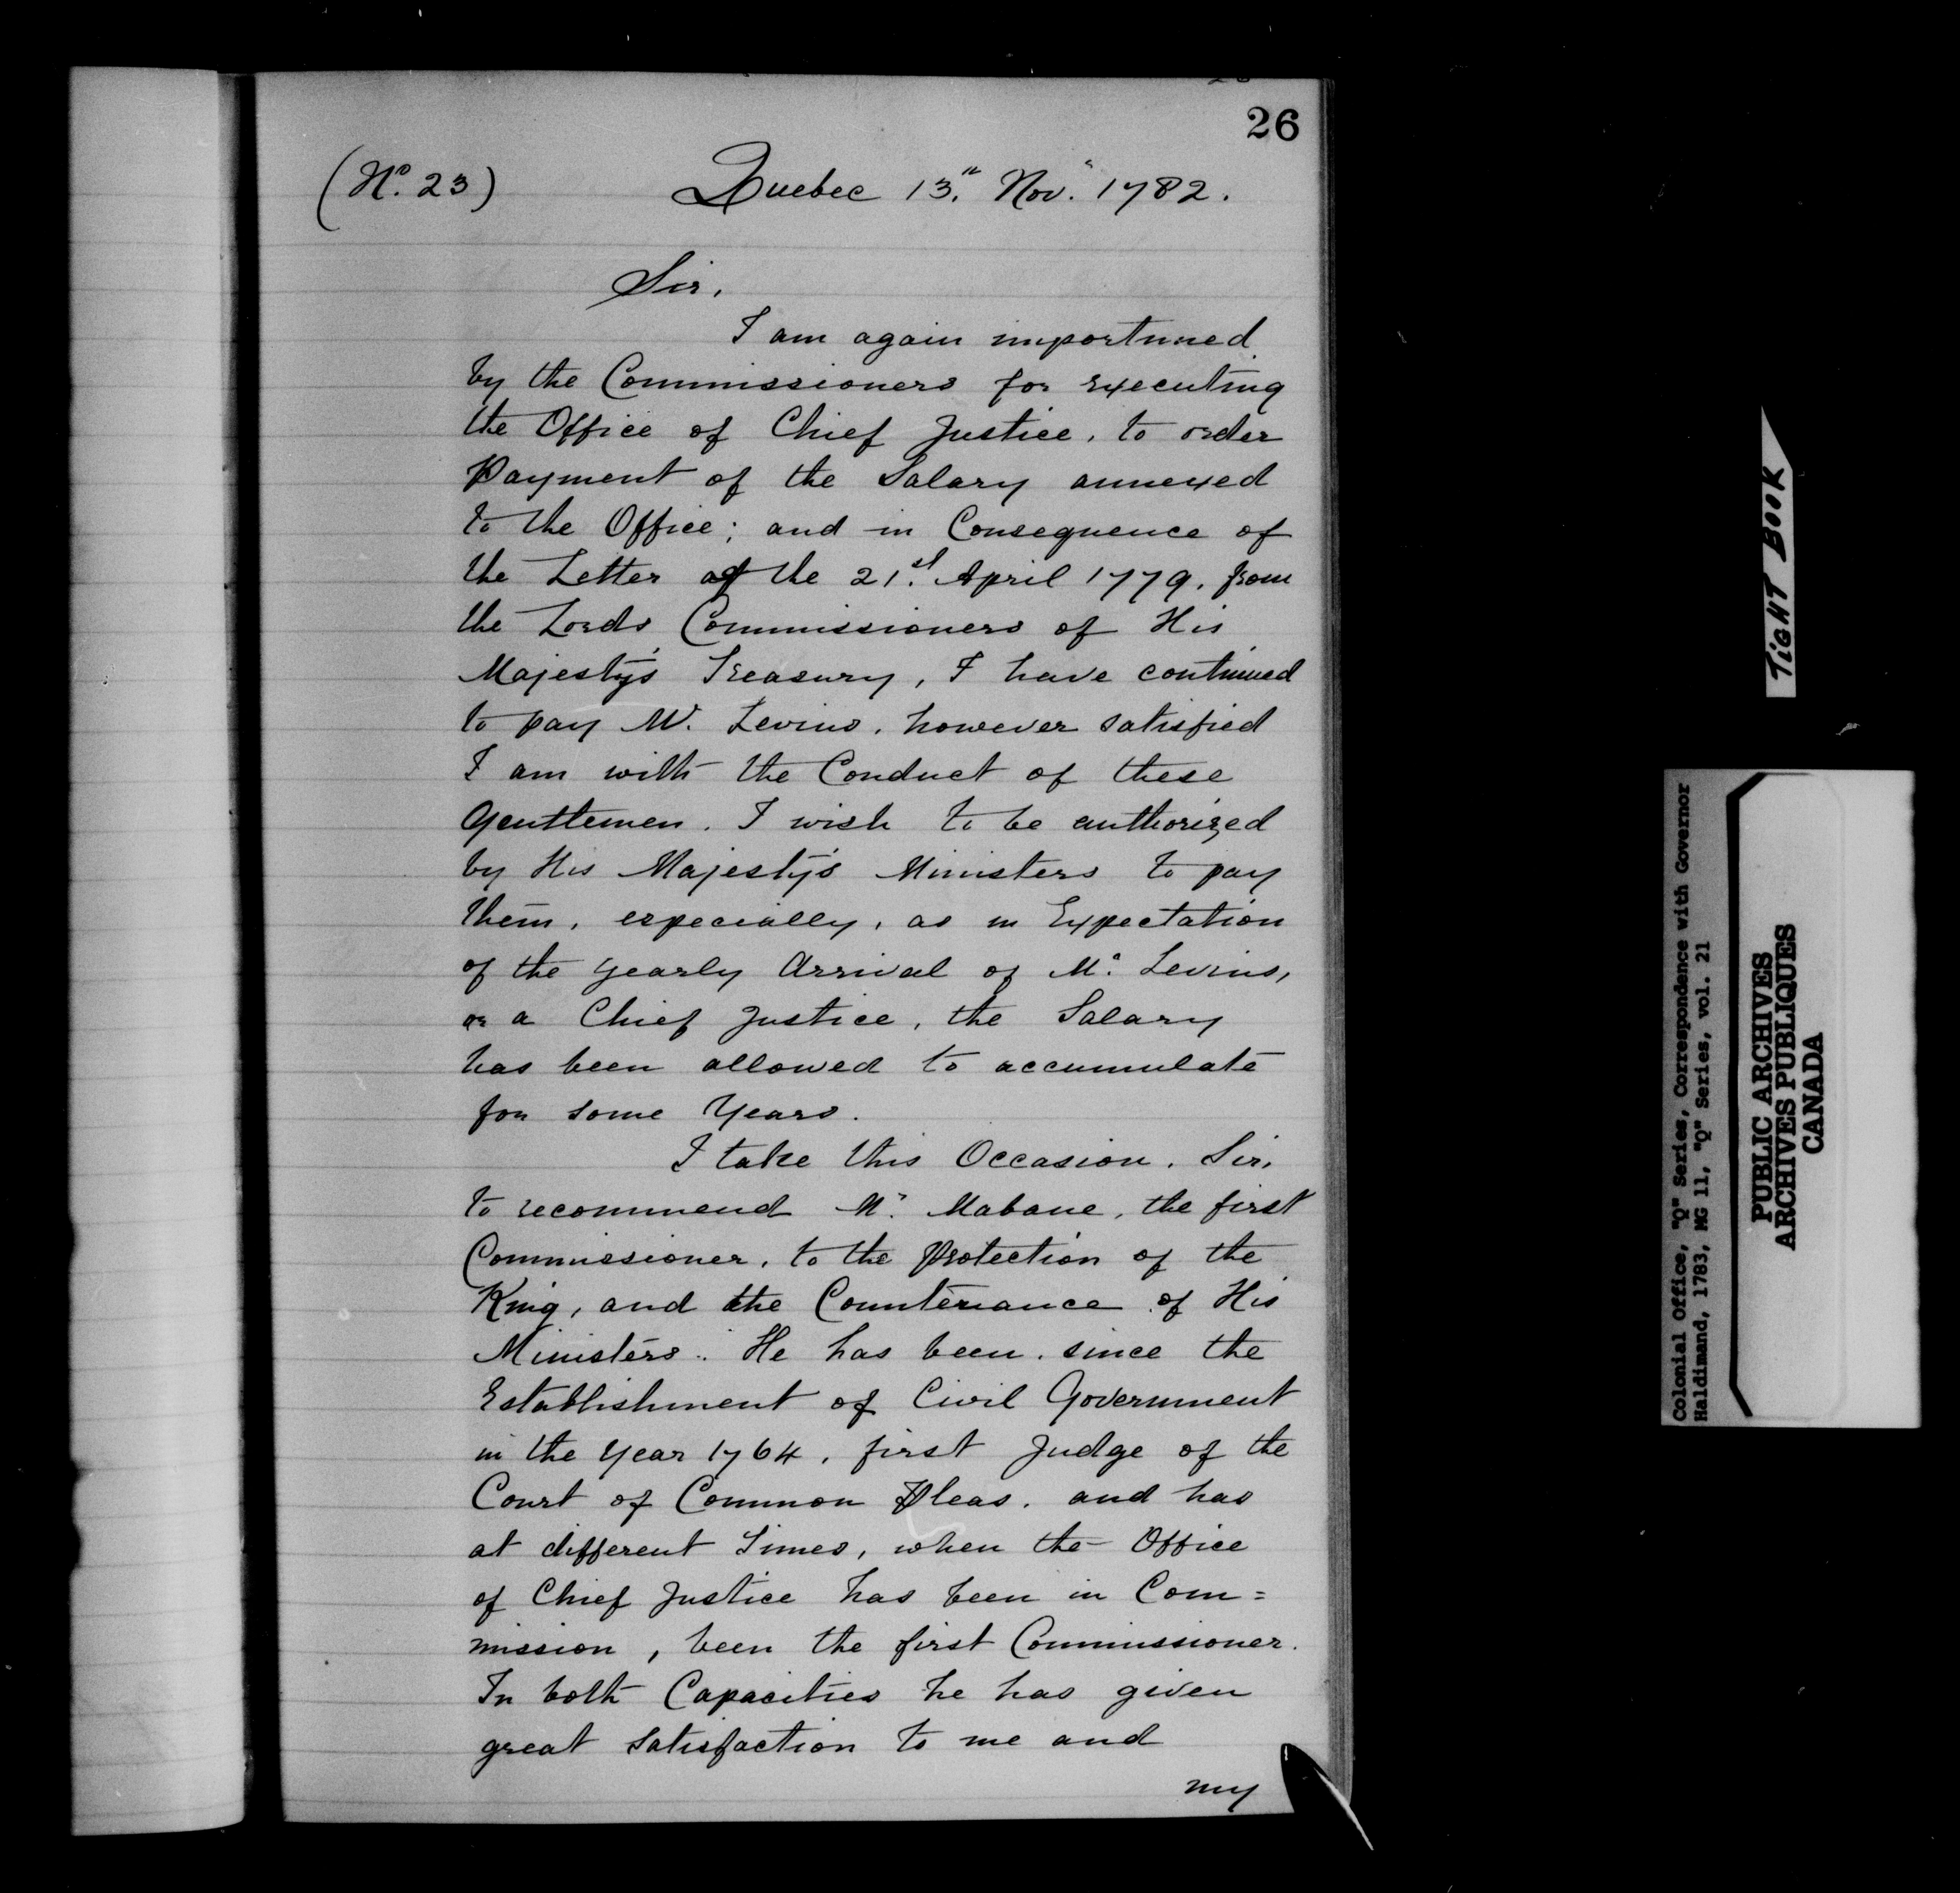 26
(No. 23) Quebec 13.th Nov.r 1782.
Sir,
I am again importuned
by the Commissioners for executing
the Office of Chief Justice, to order
Payment of the Salary annexed
to the Office; and in Consequence of
the Letter of the 21.st April 1779, from
the Lords Commissioners of His
Majesty's Treasury, I have continued
to pay Mr. Levins, however satisfied
I am with the Conduct of these
Gentlemen. I wish to be authorized
by His Majesty's Ministers to pay
them, especially, as in Expectation
of the yearly Arrival of Mr. Levins,
or a Chief Justice, the Salary
has been allowed to accumulate
for some Years.
I take this Occasion, Sir,
to recommend Mr. Mabane, the first
Commissioner, to the Protection of the
King, and the Countenance of His
Ministers. He has been, since the
Establishment of Civil Government
in the Year 1764, first Judge of the
Court of Common Pleas, and has
at different Times, when the Office
of Chief Justice has been in Com=
mission, been the first Commissioner.
In both Capacities he has given
great Satisfaction to me and
my
TIGHT BOOK
Colonial Office, "Q" Series, Correspondence with Governor
Haldimand, 1783, MG 11, "Q" Series, vol. 21
PUBLIC ARCHIVES
ARCHIVES PUBLIQUES
CANADA